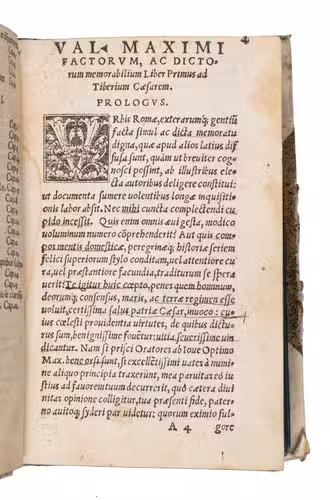 VAL. MAXIMI
FACTORVM, AC DICTO-
rum memorabilium Liber Primus ad
Tiberium Cæsarem.
PROLOGVS.
VRbis Romæ, exterarumq; gentiũ
facta simul ac dicta memoratu
digna, quæ apud alios latius dif
fusa sunt, quàm ut breuiter cog-
nosci possint, ab illustribus ele-
cta autoribus deligere constitui:
ut documenta sumere uolentibus longæ inquisitiõ-
nis labor absit. Nec mihi cuncta complectendi cu-
pido incessit. Quis enim omnis æui gesta, modico
uoluminum numero cõprehenderit? Aut quis com-
pos mentis domesticæ, peregrinæq; historiæ seriem
felici superiorum stylo conditam, uel attentiore cu
ra, uel præstantiore facundia, traditurum se spera
uerit? Te igitur huic cœpto, penes quem hominum,
deorumq; consensus, maris, ac terræ regimen esse
uoluit, certissima salus patriæ Cæsar, inuoco: cu-
ius cœlesti prouidentia uirtutes, de quibus dictu-
rus sum, benignissime fouẽtur: uitia seuerissime uin
dicantur. Nam si prisci Oratores ab Ioue Optimo
Max. bene orsi sunt, si excellẽtissimi uates à numi-
ne aliquo principia traxerunt, mea paruitas eò iu
stius ad fauorem tuum decurrerit, quò cætera diui
nitas opinione colligitur, tua præsenti fide, pater-
no auitoq; syderi par uidetur: quorum eximio ful-
A 4 gore